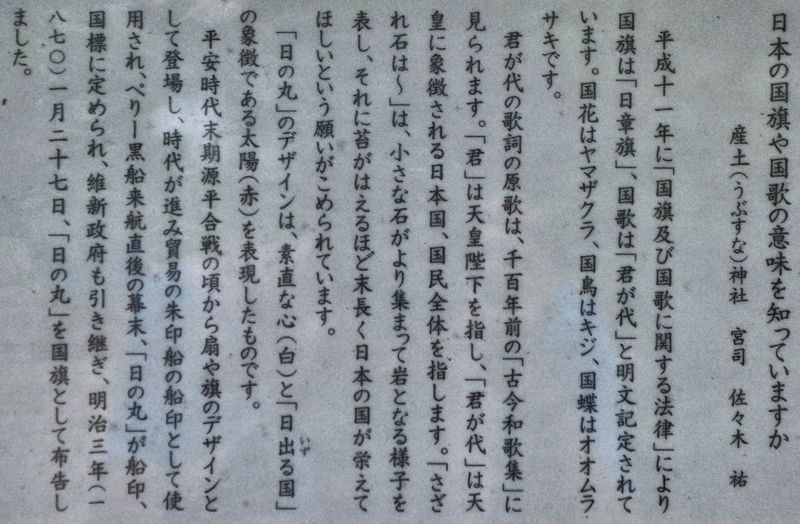 日本の国旗や国歌の意味を知っていますか
産土(うぶすな)神社 宮司 佐々木 祐
平成十一年に「国旗及び国歌に関する法律」により
国旗は「日章旗」、国歌は「君が代」と明文記定されて
います。国花はヤマザクラ、国鳥はキジ、国蝶はオオムラ
サキです。
君が代の歌詞の原歌は、千百年前の「古今和歌集」に
見られます。「君」は天皇陛下を指し、「君が代」は天
皇に象徴される日本国、国民全体を指します。「さざ
れ石は〜」は、小さな石がより集まって岩となる様子を
表し、それに苔がはえるほど末長く日本の国が栄えて
ほしいという願いがこめられています。
「日の丸」のデザインは、素直な心(白)と「日出いずる国」
の象徴である太陽(赤)を表現したものです。
平安時代末期源平合戦の頃から扇や旗のデザインと
して登場し、時代が進み貿易の朱印船の船印として使
用され、ペリー黒船来航直後の幕末、「日の丸」が船印、
国標に定められ、維新政府も引き継ぎ、明治三年(一
八七〇)一月二十七日、「日の丸」を国旗として布告し
ました。